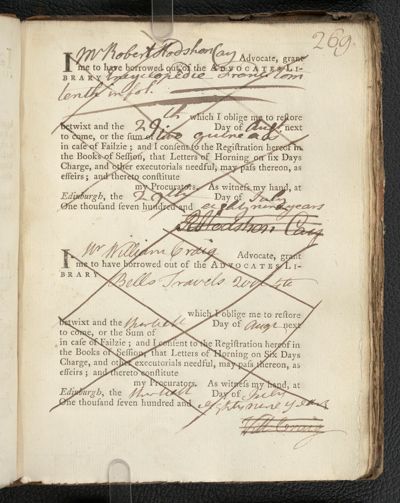 269.
I Mr Robert Hodshon Cay Advocate, grant
me to have borrowed out of the ADVOCATES LI-
BRARY Encyclopedie Franc Tom
tenth in fol.
which I oblige me to reſtore
betwixt and the 29th Day of Augt next
to come, or the sum of two guineas
in caſe of Failzie; and I conſent to the Regiſtration hereof in
the Books of Seſſion, that Letters of Horning on ſix Days
Charge, and other executorials needful, may paſs thereon, as
effeirs; and thereto conſtitute
my Procurators. As witneſs my hand, at
Edinburgh, the 29th Day of July
One thouſand ſeven hundred and eighty nine years
R Hodshon Cay
I Mr William Craig Advocate, grant
me to have borrowed out of the ADVOCATES LI-
BRARY Bells Travels 2 vol 4to
which I oblige me to reſtore
betwixt and the thirtieth Day of Augt next
to come, or the Sum of
in caſe of Failzie; and I conſent to the Regiſtration hereof in
the Books of Seſſion, that Letters of Horning on Six Days
Charge, and other executorials needful, may paſs thereon, as
effeirs; and thereto conſtitute
my Procurators. As witneſs my hand, at
Edinburgh, the thirtieth Day of July
One thouſand ſeven hundred and eighty nine years
Will. Craig